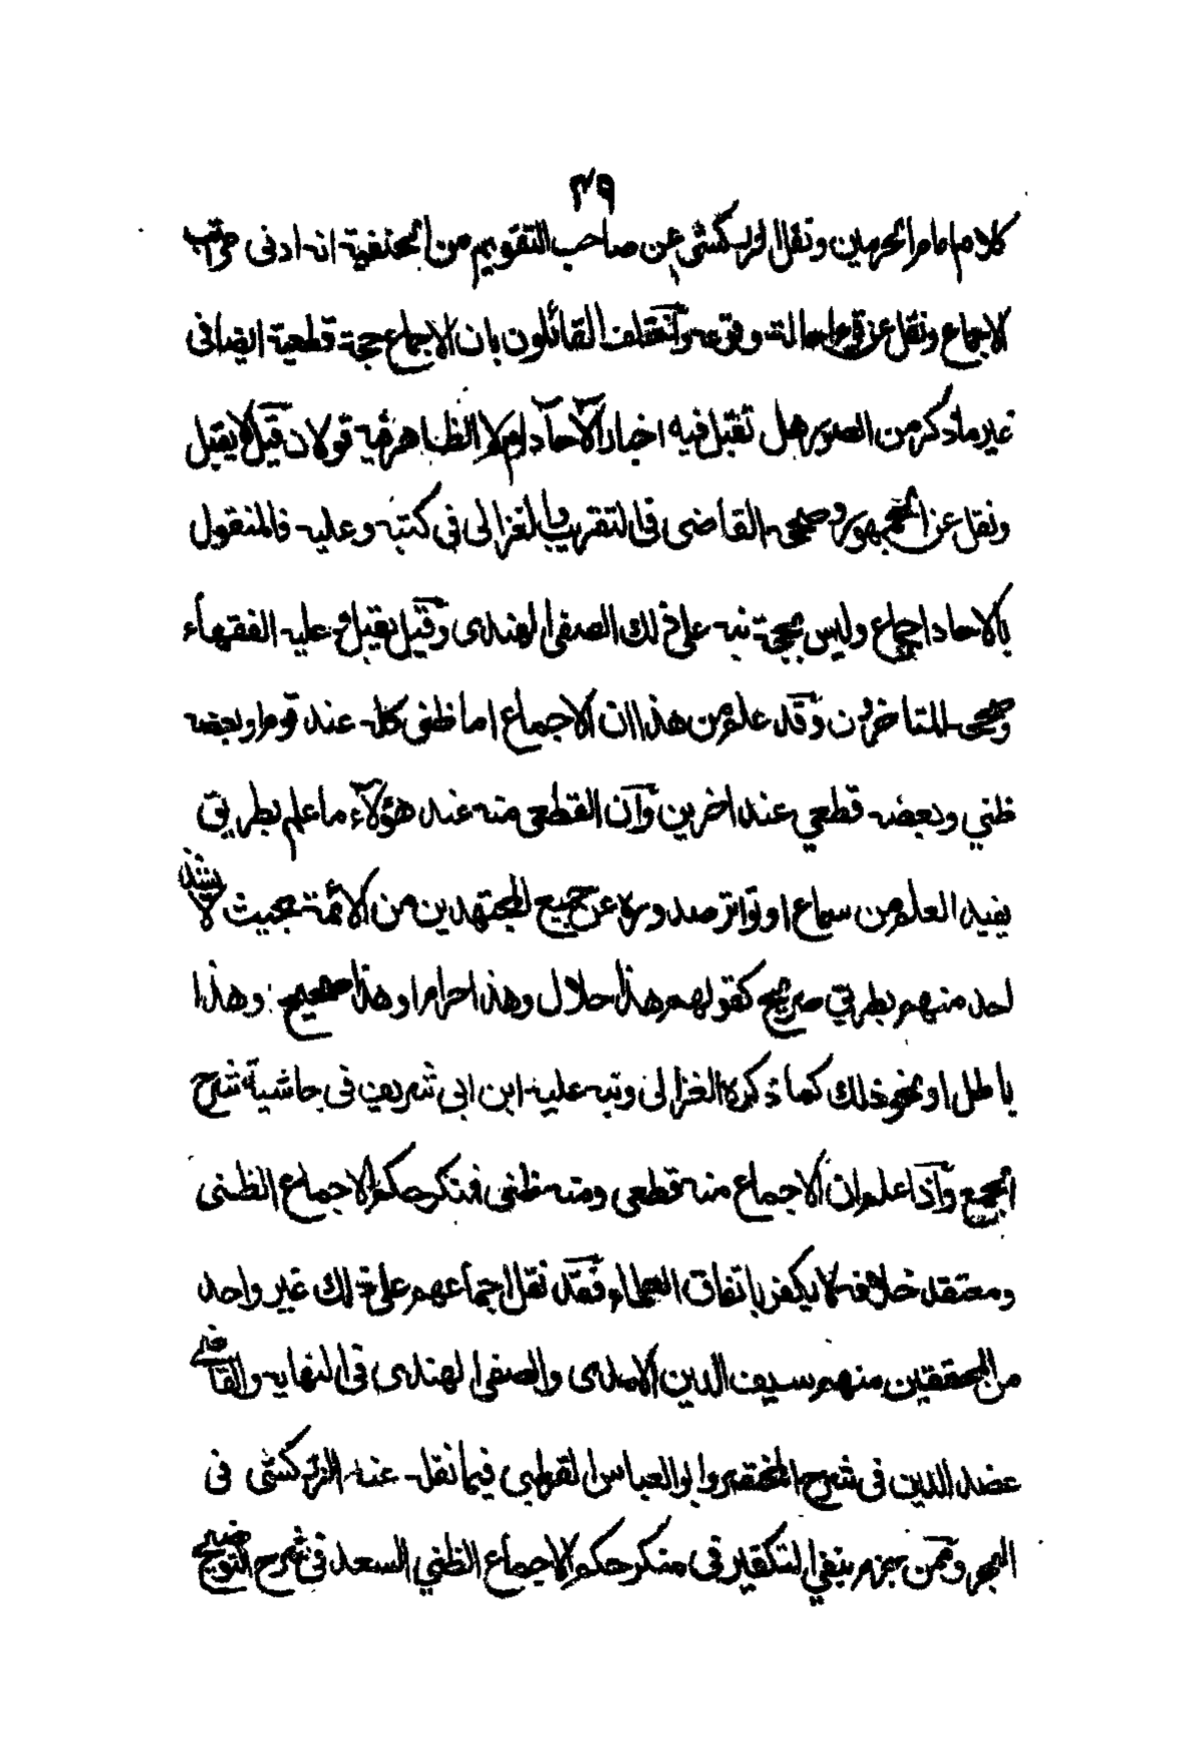 ٣٩
كلام امام الحرمين ونقل الزركشى عن صاحب التقويم من الحنفية انه ادنى مراتب
الاجماع ونقل عن قوم احالة وقوعه واختلف القائلون بان الاجماع حجة قطعية ايضا فى
غير ما ذكر من الصور هل تقبل فيه اخبار الآحاد ام لا الظاهر فيه قولان قيل لا يقبل
ونقل عن الجمهور وصححه القاضى فى التقريب والغزالى فى كتبه وعليه فالمنقول
بالاحاد اجماع وليس بحجة نبه على ذلك الصفى الهندى وقيل يقبل وعليه الفقهاء
وصححه المتاخرون وقد علم من هذا ان الاجماع اما ظنى كله عند قوم او بعضه
ظني وبعضه قطعي عند اخرين وان القطعى منه عند هؤلآء ما علم بطريق
يفيد العلم من سماع او تواتر صدوره عن جميع المجتهدين من الائمة بحيث لا يشذ
احد منهم بطريق صريح كقولهم هذا حلال وهذا حرام او هذا صحيح وهذا
باطل او نحو ذلك كما ذكره الغزالى ونبه عليه ابن ابى شريف فى حاشية شرح
الجمع واذا علم ان الاجماع منه قطعى ومنه ظنى فمنكر حكم الاجماع الظنى
ومعتقد خلافه لا يكفر باتفاق العلماء فقد نقل اجماعهم على ذلك غير واحد
من المحققين منهم سيف الدين الامدى والصفى الهندى فى النهايه والقاضى
عضد الدين فى شرح المختصر وابو العباس القرطبى فيما نقله عنه الزركشى فى
البحر وممن جزم بنفي التكفير فى منكر حكم الاجماع الظني السعد فى شرح التوضيح